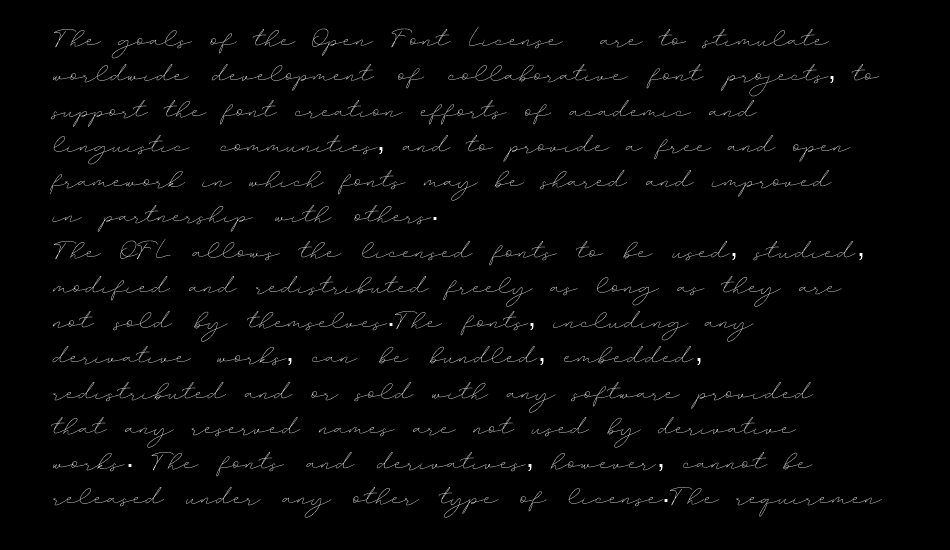 The goals of the Open Font License are to stimulate
worldwide development of collaborative font projects, to
support the font creation efforts of academic and
linguistic communities, and to provide a free and open
framework in which fonts may be shared and improved
in partnership with others.
The OFL allows the licensed fonts to be used, studied,
modified and redistributed freely as long as they are
not sold by themselves.The fonts, including any
derivative works, can be bundled, embedded,
redistributed and or sold with any software provided
that any reserved names are not used by derivative
works. The fonts and derivatives, however, cannot be
released under any other type of license.The requiremen